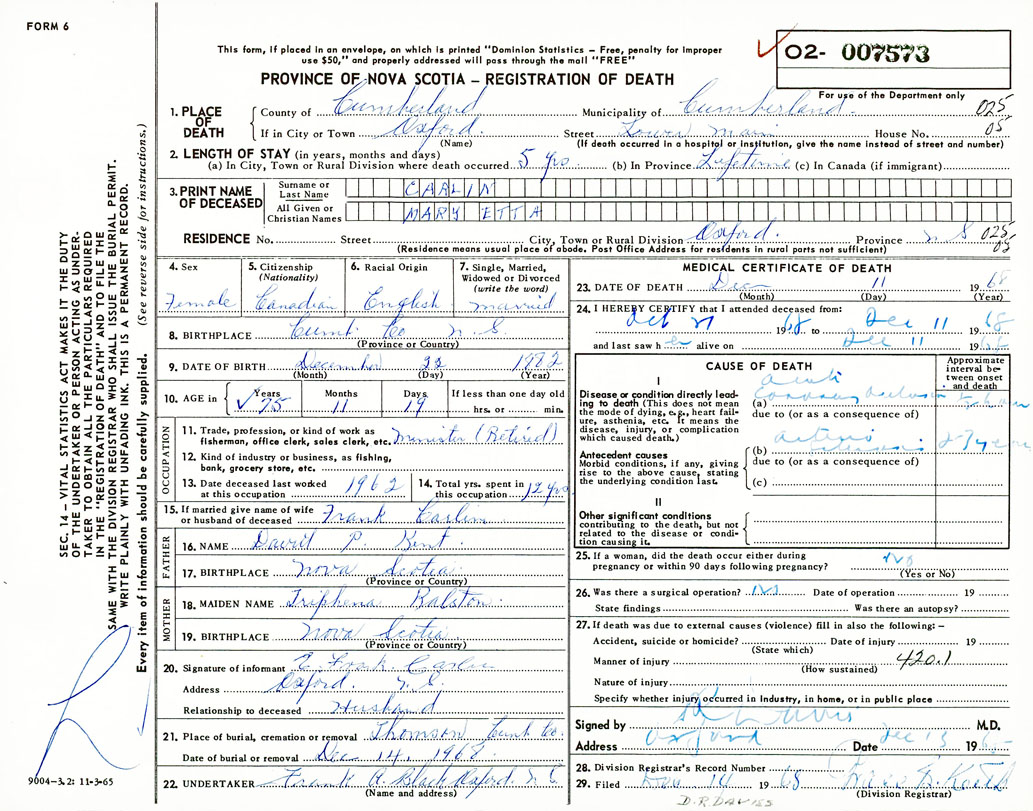 FORM 6
This form, if placed in an envelope, on which is printed "Dominion Statistics – Free, penalty for improper
use $50," and properly addressed will pass through the mail "FREE"
PROVINCE OF NOVA SCOTIA – REGISTRATION OF DEATH
02- 007573
For use of the Department only
1. PLACE OF DEATH
County of Cumberland Municipality of Cumberland 025
If in City or Town Oxford. Street Lower Main House No. 05
(Name) (If death occurred in a hospital or institution, give the name instead of street and number)
2. LENGTH OF STAY (in years, months and days)
(a) In City, Town or Rural Division where death occurred 5 yrs (b) In Province Lifetime (c) In Canada (if immigrant)
3. PRINT NAME OF DECEASED
Surname or Last Name CARLIN
All Given or Christian Names MARY ETTA
RESIDENCE No. Street City, Town or Rural Division Oxford. Province N S 025
(Residence means usual place of abode. Post Office Address for residents in rural parts not sufficient) 05
4. Sex
Female
5. Citizenship
(Nationality)
Canadian
6. Racial Origin
English
7. Single, Married,
Widowed or Divorced
(write the word)
married
8. BIRTHPLACE Cumb. Co. N. S.
(Province or Country)
9. DATE OF BIRTH December 22
(Month) (Day) (Year)
10. AGE in Years 75 Months 11 Days 19 If less than one day old
hrs. or min.
OCCUPATION
11. Trade, profession, or kind of work as
fisherman, office clerk, sales clerk, etc. Minister (Retired)
12. Kind of industry or business, as fishing,
bank, grocery store, etc.
13. Date deceased last worked
at this occupation 1962
14. Total yrs. spent in
this occupation 12 yrs
15. If married give name of wife
or husband of deceased Frank Carlin
FATHER
16. NAME David P. Kent
17. BIRTHPLACE Nova Scotia
(Province or Country)
MOTHER
18. MAIDEN NAME Triphena Ralston
19. BIRTHPLACE Nova Scotia
(Province or Country)
20. Signature of informant E. Frank Carlin
Address Oxford. N. S.
Relationship to deceased Husband
21. Place of burial, cremation or removal Thomson Cumb Co.
Date of burial or removal Dec 14, 1968
22. UNDERTAKER Frank A. Black Oxford, N. S
(Name and address)
MEDICAL CERTIFICATE OF DEATH
23. DATE OF DEATH Dec 11 1968
(Month) (Day) (Year)
24. I HEREBY CERTIFY that I attended deceased from:
Oct 21 1968 to Dec 11 1968
and last saw her alive on Dec 11 1968
CAUSE OF DEATH
Approximate interval between onset and death
I
Disease or condition directly leading to death (This does not mean the mode of dying, e.g., heart failure, asthenia, etc. It means the disease, injury, or complication which caused death.)
acute
(a) Coronary occlusion
due to (or as a consequence of)
Antecedent causes
Morbid conditions, if any, giving rise to the above cause, stating the underlying condition last.
(b) arterio
due to (or as a consequence of)
(c)
II
Other significant conditions
contributing to the death, but not related to the disease or condition causing it.
25. If a woman, did the death occur either during
pregnancy or within 90 days following pregnancy? No
(Yes or No)
26. Was there a surgical operation? No Date of operation 19
State findings Was there an autopsy?
27. If death was due to external causes (violence) fill in also the following: –
Accident, suicide or homicide? Date of injury 19
(State which)
Manner of injury 420.1
(How sustained)
Nature of injury
Specify whether injury occurred in Industry, in home, or in public place
Signed by M.D.
Address Oxford Date Dec 13 19
28. Division Registrar's Record Number
29. Filed Dec 14 1968
(Division Registrar)
D.R DAVIES
SEC. 14 – VITAL STATISTICS ACT MAKES IT THE DUTY
OF THE UNDERTAKER OR PERSON ACTING AS UNDER-
TAKER TO OBTAIN ALL THE PARTICULARS REQUIRED
IN THE "REGISTRATION OF DEATH" AND TO FILE THE
SAME WITH THE DIVISION REGISTRAR WHO SHALL ISSUE THE BURIAL PERMIT.
WRITE PLAINLY WITH UNFADING INK. THIS IS A PERMANENT RECORD.
Every item of information should be carefully supplied. (See reverse side for instructions.)
9004-3.2: 11-3-65